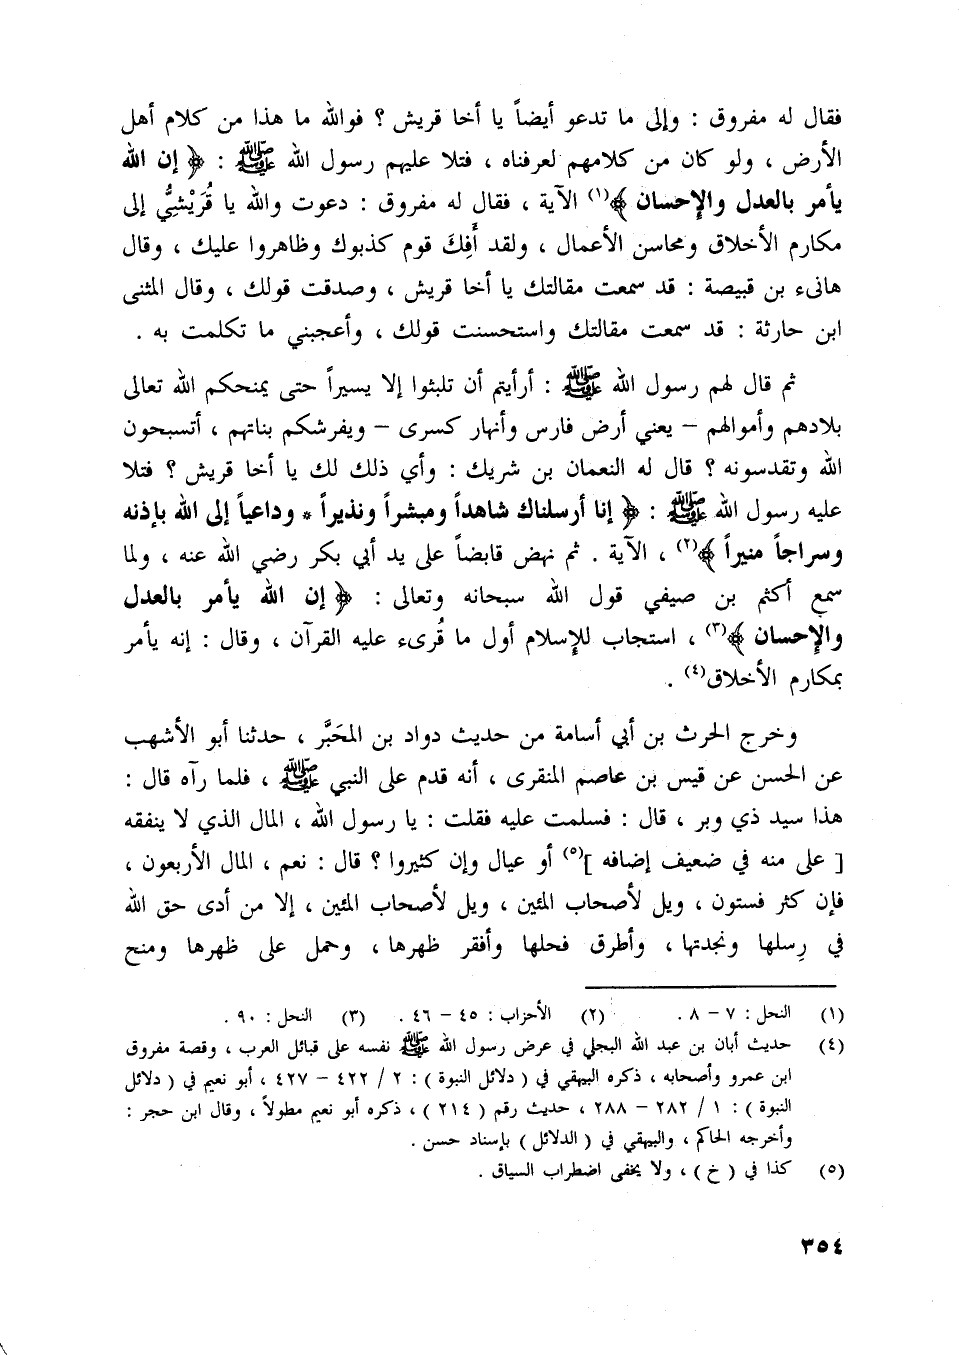 فقال له مفروق : وإلى ما تدعو أيضاً يا أخا قريش ؟ فوالله ما هذا من كلام أهل
الأرض ، ولو كان من كلامهم لعرفناه ، فتلا عليهم رسول الله ﷺ : ﴿ إن الله
يأمر بالعدل والإحسان ﴾(١) الآية ، فقال له مفروق : دعوت والله يا قُرَيْشِيُّ إلى
مكارم الأخلاق ومحاسن الأعمال ، ولقد أَفِكَ قوم كذبوك وظاهروا عليك ، وقال
هانىء بن قبيصة : قد سمعت مقالتك يا أخا قريش ، وصدقت قولك ، وقال المثنى
ابن حارثة : قد سمعت مقالتك واستحسنت قولك ، وأعجبني ما تكلمت به .
ثم قال لهم رسول الله ﷺ : أرأيتم أن تلبثوا إلا يسيراً حتى يمنحكم الله تعالى
بلادهم وأموالهم – يعني أرض فارس وأنهار كسرى – ويفرشكم بناتهم ، أتسبحون
الله وتقدسونه ؟ قال له النعمان بن شريك : وأي ذلك لك يا أخا قريش ؟ فتلا
عليه رسول الله ﷺ : ﴿ إنا أرسلناك شاهداً ومبشراً ونذيراً * وداعياً إلى الله بإذنه
وسراجاً منيراً ﴾(٢) ، الآية . ثم نهض قابضاً على يد أبي بكر رضي الله عنه ، ولما
سمع أكثم بن صيفي قول الله سبحانه وتعالى : ﴿ إن الله يأمر بالعدل
والإحسان ﴾(٣) ، استجاب للإسلام أول ما قُرىء عليه القرآن ، وقال : إنه يأمر
بمكارم الأخلاق(٤) .
وخرج الحرث بن أبي أسامة من حديث دواد بن المحَبَّر ، حدثنا أبو الأشهب
عن الحسن عن قيس بن عاصم المنقرى ، أنه قدم على النبي ﷺ ، فلما رآه قال :
هذا سيد ذي وبر ، قال : فسلمت عليه فقلت : يا رسول الله ، المال الذي لا ينفقه
[ على منه في ضعيف إضافه ](٥) أو عيال وإن كثيروا ؟ قال : نعم ، المال الأربعون ،
فإن كثر فستون ، ويل لأصحاب المئين ، ويل لأصحاب المئين ، إلا من أدى حق الله
في رِسلها ونجدتها ، وأطرق فحلها وأفقر ظهرها ، وحمل على ظهرها ومنح
(١) النحل : ٧ – ٨ . (٢) الأحزاب : ٤٥ – ٤٦ . (٣) النحل : ٩٠ .
(٤) حديث أبان بن عبد الله البجلي في عرض رسول الله ﷺ نفسه على قبائل العرب ، وقصة مفروق
ابن عمرو وأصحابه ، ذكره البيهقي في ( دلائل النبوة ) : ٢ / ٤٢٢ – ٤٢٧ ، أبو نعيم في ( دلائل
النبوة ) : ١ / ٢٨٢ – ٢٨٨ ، حديث رقم ( ٢١٤ ) ، ذكره أبو نعيم مطولاً ، وقال ابن حجر :
وأخرجه الحاكم ، والبيهقي في ( الدلائل ) بإسناد حسن .
(٥) كذا في ( خ ) ، ولا يخفى اضطراب السياق .
٣٥٤